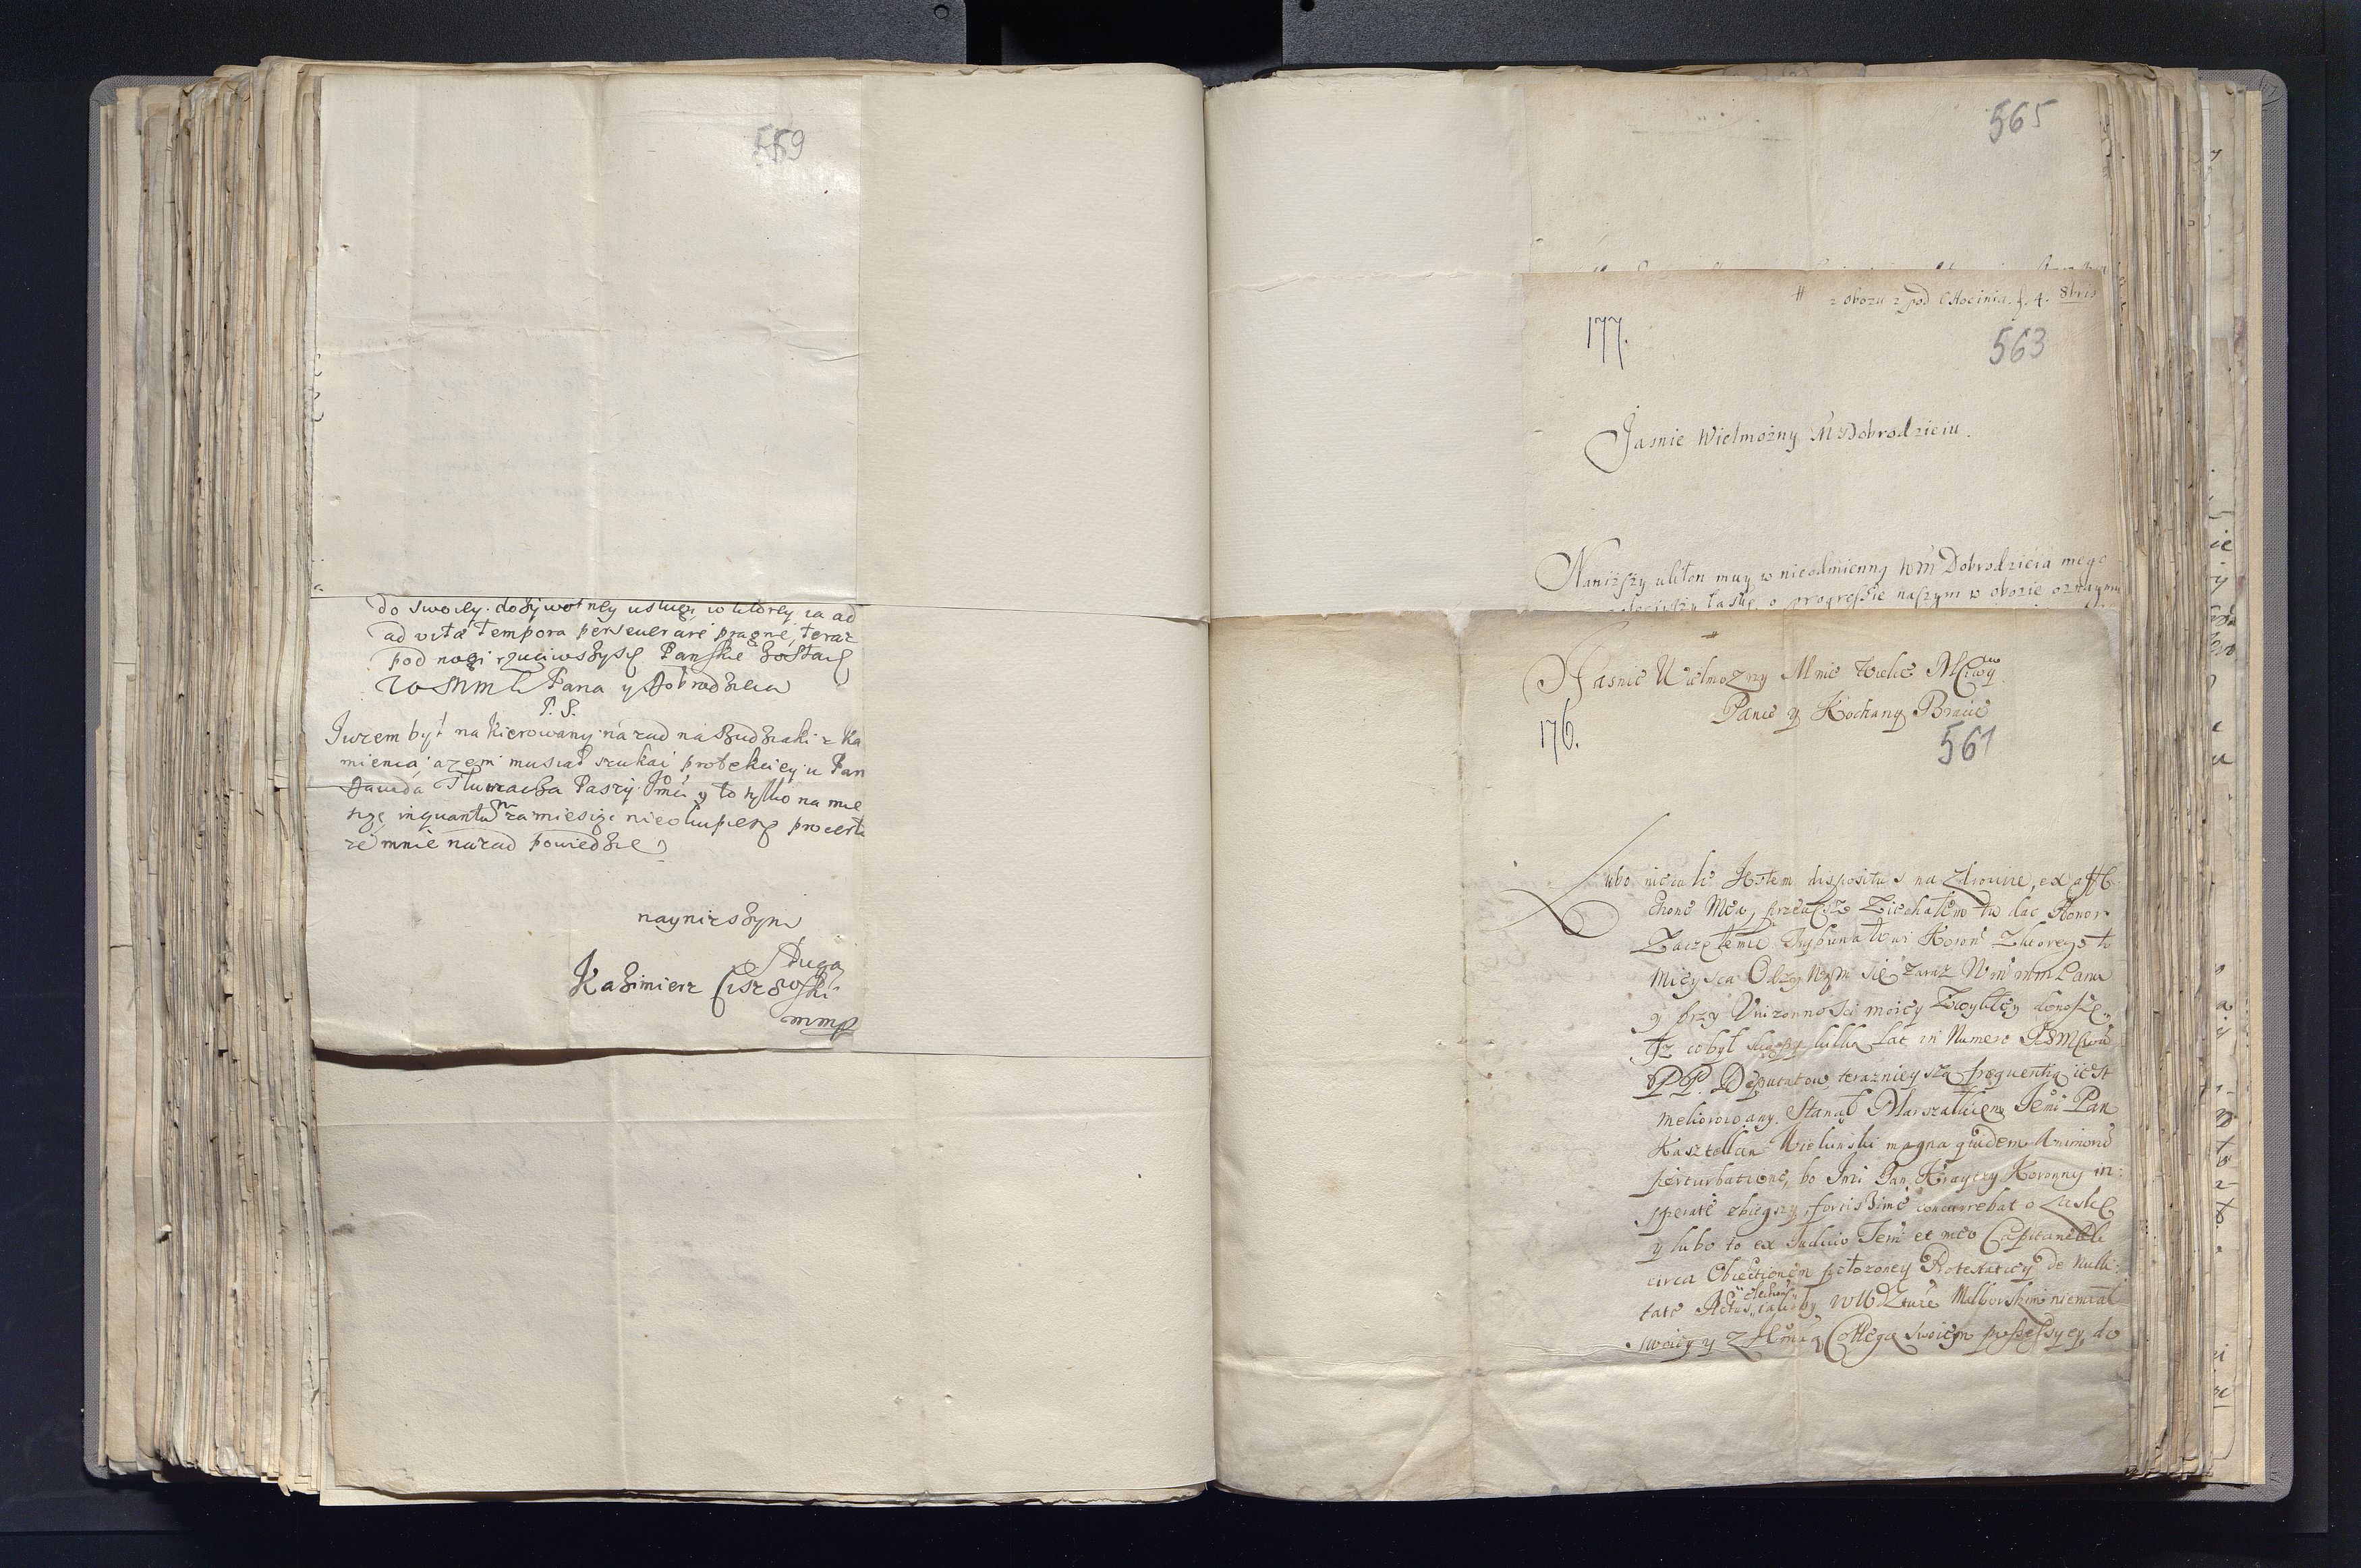 559
do swoiey dożywotniey usługi w ktorey ia ad
ad vitæ tempora perseuerare pragnę, teraz
pod nogi rzuciwszysię Panskie zostaię
WSMM Pana y Dobrodzieia
P. S.
Iuzem był nakierowany nazad na Budziaki z Ka
mienca azem musiał szukai protekciey u Pan
Dawida Tłumacza Paszy Imci y to tylko na mie
siąc inquantum za miesiąc nieokupierę
ze mnie nazad powiedzie
naynizszym
Sługą
Kazimierz
mmp
565
# z obozu z pod Chocimia. f. 4. 8bris
177.
563
Jasnie Wielmożny M Dobrodzieiu.
Naniższy ukłon muy w nieodmienną WM Dobrodzieia mego
łaskę, o progressie naszym w obozie oznaymu
#
Jasnie Wielmozny Mnie Wielce Mciwy
Panie y Kochany Bracie
176.
561
Lubo niecale Iestem dispositus na zdrowie, ex affe
ctione Mea, przeciesz Ziechałem tu dac Honor
Zaczętemu Trybunałowi Koron Zktorego tu
mieysca Odzywam się zaraz Wm mm Panu
y przy Unizonnosci moiey Zwykłey donoszę,
Iz co był skąpy kilka Lat in Numero
PP. Deputatow, teraznieyszą frequentią iest
meliorowany. Stanął Marszałkiem Iemć Pan
Kasztellan Wielunski magna quidem Animorū
perturbatione, bo Imć Pan Krayczy Koronny in:
sperate zbiegszy, fortissime concurrebat o Laskę
y lubo to ex Iudicio Iem et meo Capitaneali
circa Obiectionem położoney Protestatiey de Nulli:
tate Actus electionis
swoiey y z Collegą swoiem possessyey, do